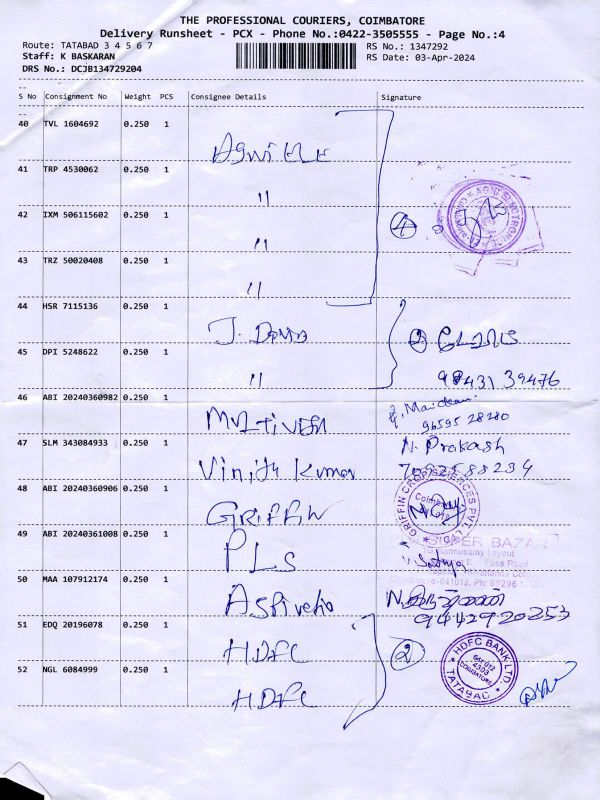 THE PROFESSIONAL COURIERS, COIMBATORE
Delivery Runsheet - PCX - Phone No.:0422-3505555 - Page No.:4
Route: TATABAD 3 4 5 6 7 RS No.: 1347292
Staff: K BASKARAN RS Date: 03-Apr-2024
DRS No.: DCJB134729204
S No Consignment No Weight PCS Consignee Details Signature
40 TVL 1604692 0.250 1
41 TRP 4530062 0.250 1 "
42 IXM 506115602 0.250 1 " 4 AGNI ELECTRONICS
43 TRZ 50020408 0.250 1 "
44 HSR 7115136 0.250 1 J. 2
45 DPI 5248622 0.250 1 " 98431 39476
46 ABI 20240360982 0.250 1 96595 28280
47 SLM 343084933 0.250 1 Vinith Kumar N. Prakash
7092588234
48 ABI 20240360906 0.250 1 GRIFFIN GRIFFIN CROP SCIENCES PVT. LTD. Coimbatore
49 ABI 20240361008 0.250 1 PLS SUPER BAZAR
Kannusamy Layout
Pass Road
50 MAA 107912174 0.250 1 N.
9442920253
51 EDQ 20196078 0.250 1 HDFC 2 HDFC BANK LTD. TATABAD COIMBATORE
52 NGL 6084999 0.250 1 HDFC